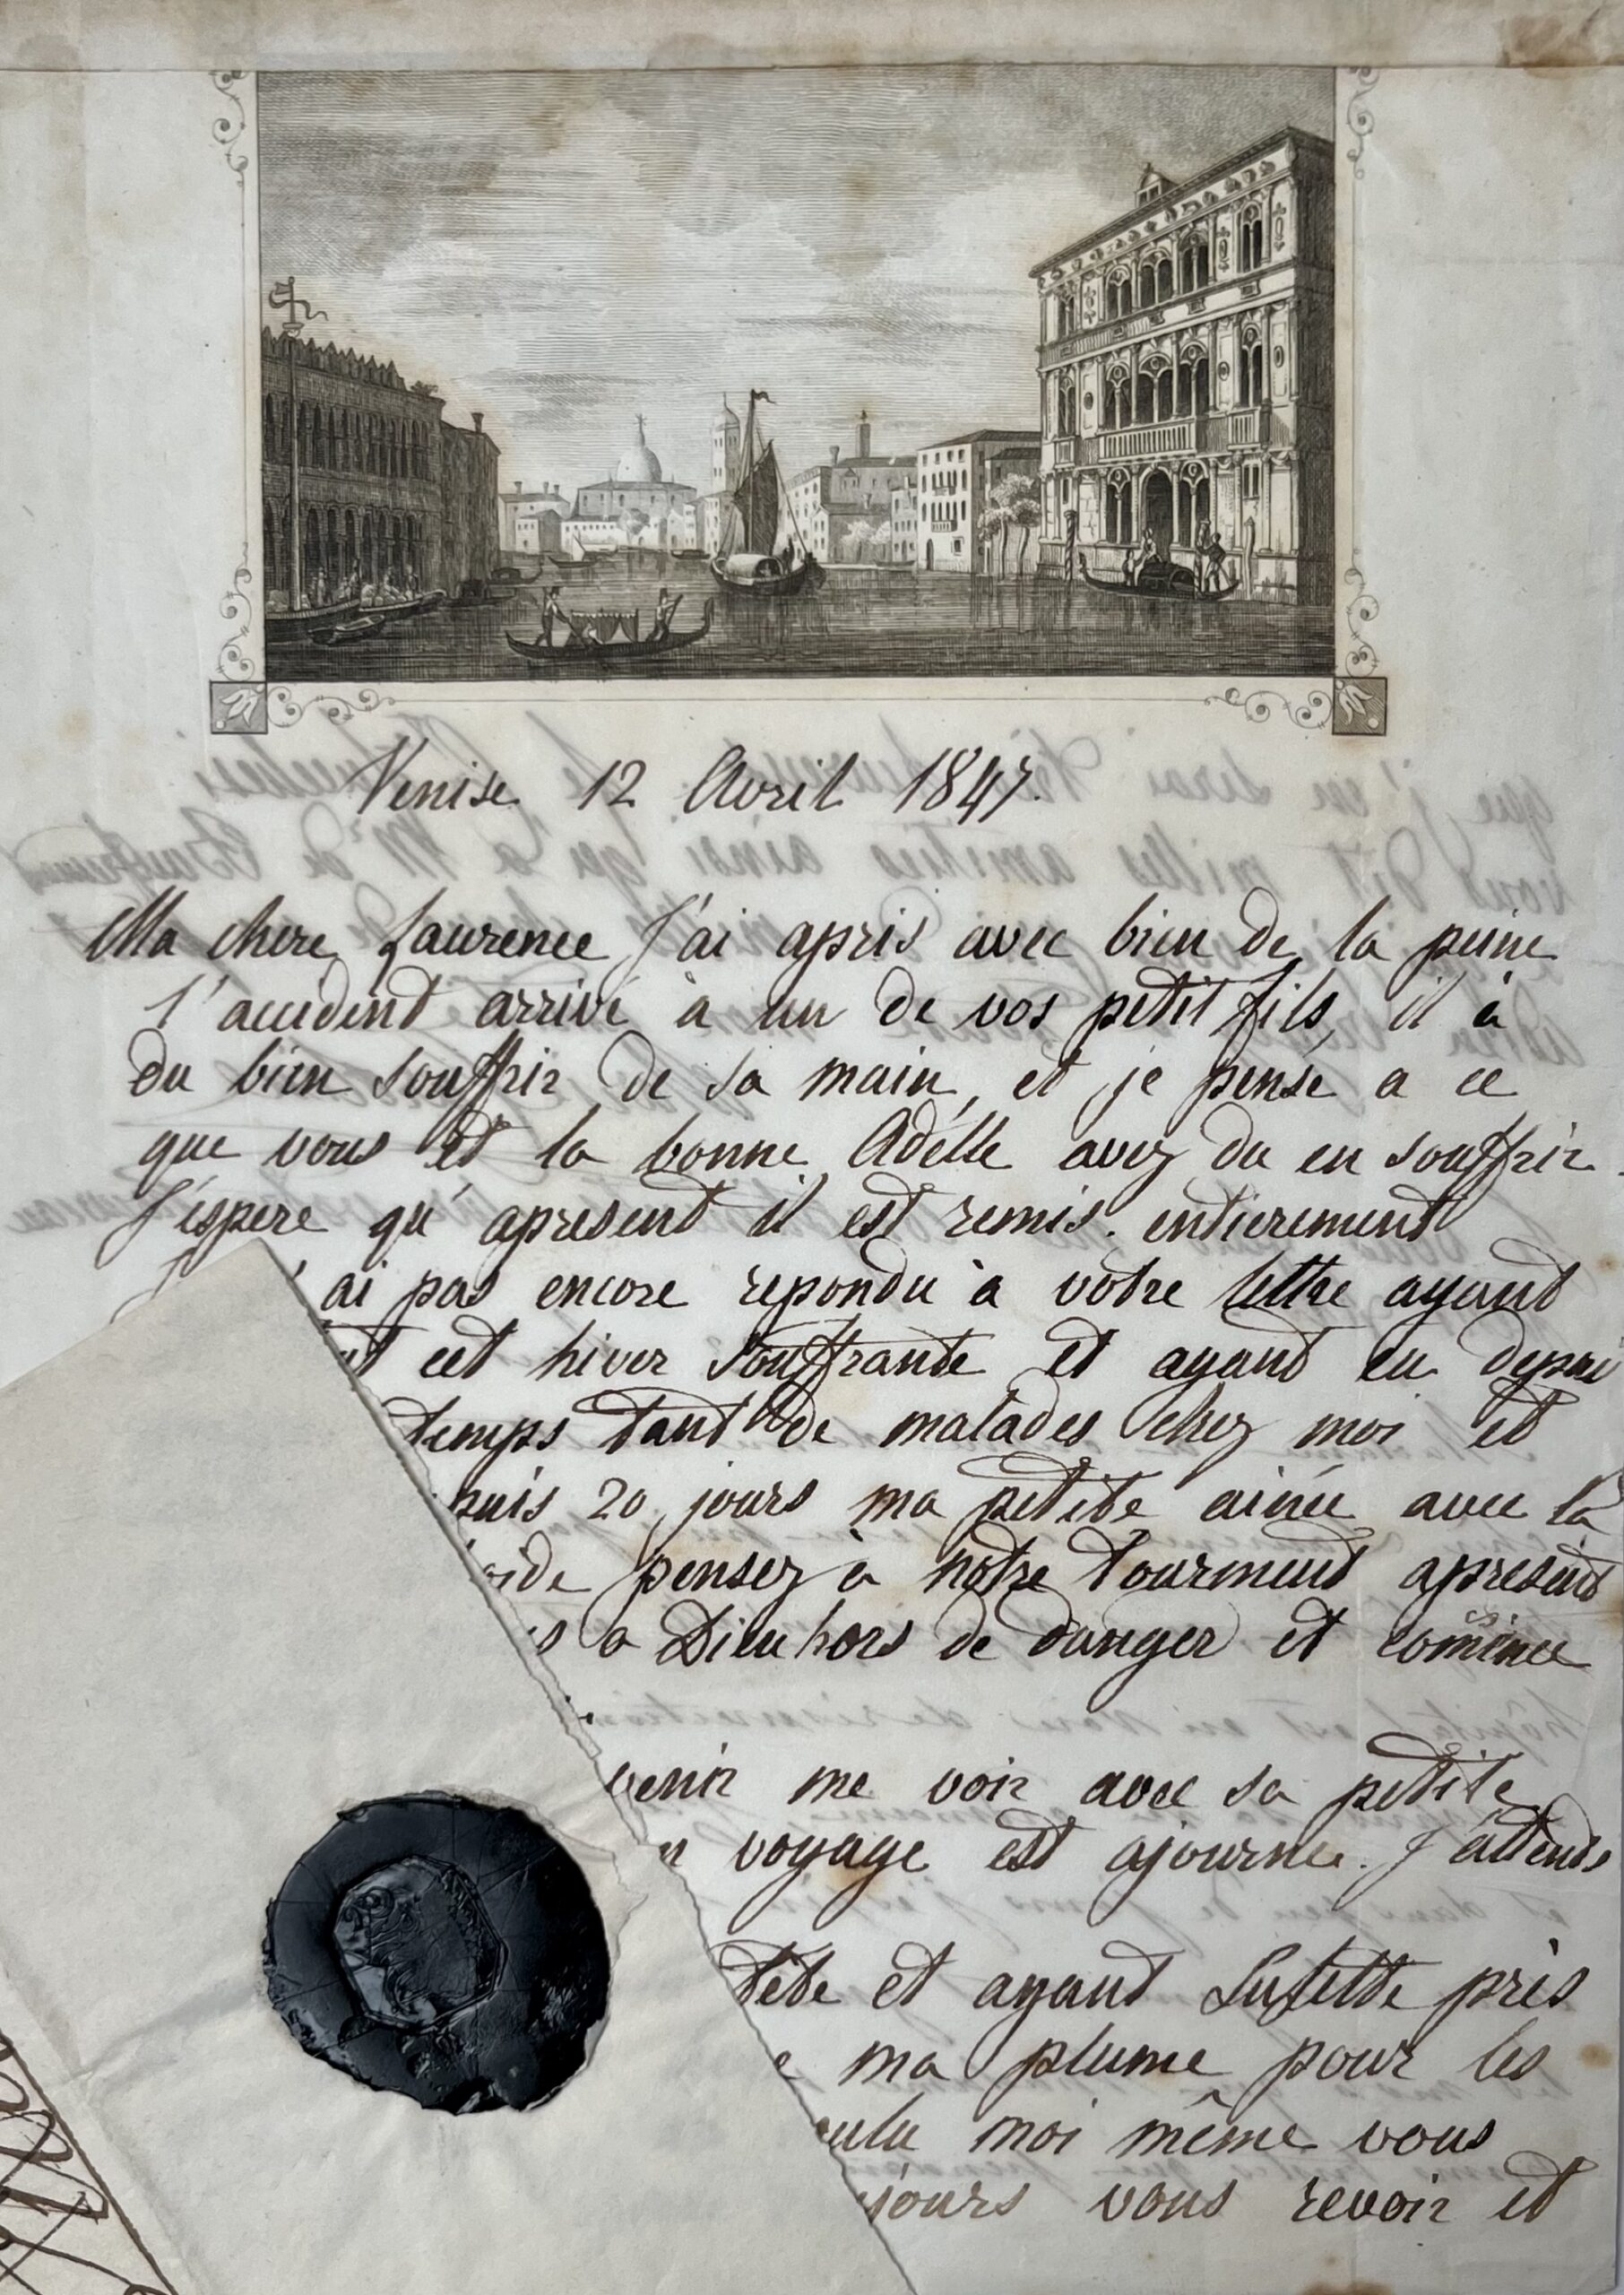 Venise 12 Avril 1847.
Ma chere Laurence J'ai apris avec bien de la peine
l'accident arrivé à un de vos petit fils, il à
du bien souffrir de sa main, et je pense a ce
que vous et la bonne Adélle avez du en souffrir.
J'éspere qu'apresent il est remis. entierement
'ai pas encore repondu à votre lettre ayant
cet hiver souffrante et ayant eu depui
temps tant de malades chez moi et
puis 20 jours ma petite ainée avec la
oide pensez à notre tourment apresent
s a Dieu hors de danger et
venir me voir avec sa petite
n voyage est ajourné. J'attends
tête et ayant pris
e ma plume pour les
oulu moi même vous
jours vous revoir et